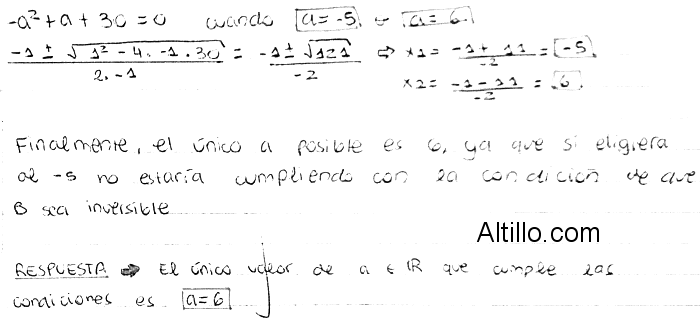 -a² + a + 30 = 0 cuando a = -5 o a = 6
-1 ± √1² - 4. -1. 30 / 2. -1 = -1 ± √121 / -2 ⇒ x1 = -1 + 11 / -2 = -5
x2 = -1 - 11 / -2 = 6
Finalmente, el único a posible es 6, ya que si eligiera
al -5 no estaría cumpliendo con la condición de que
B sea inversible
Altillo.com
RESPUESTA ⇒ El único valor de a ∈ ℝ que cumple las
condiciones es a = 6